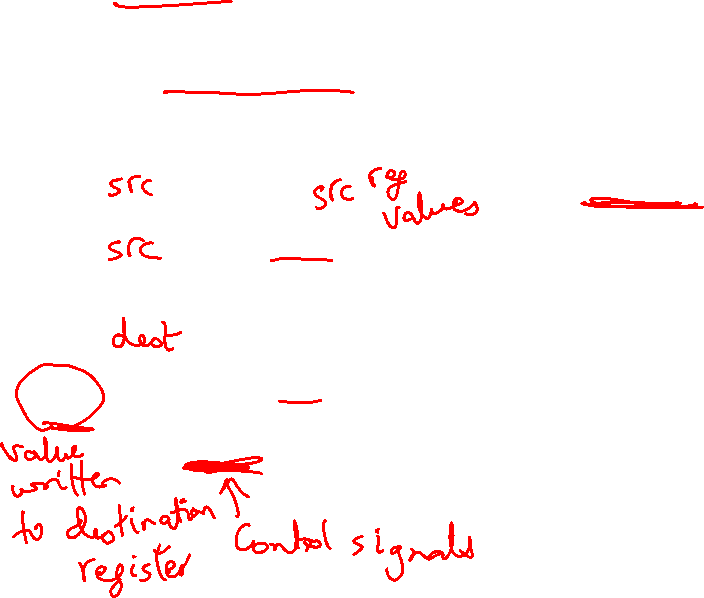 src
src reg
values
src
dest
value
written
to destination
register
Control signals